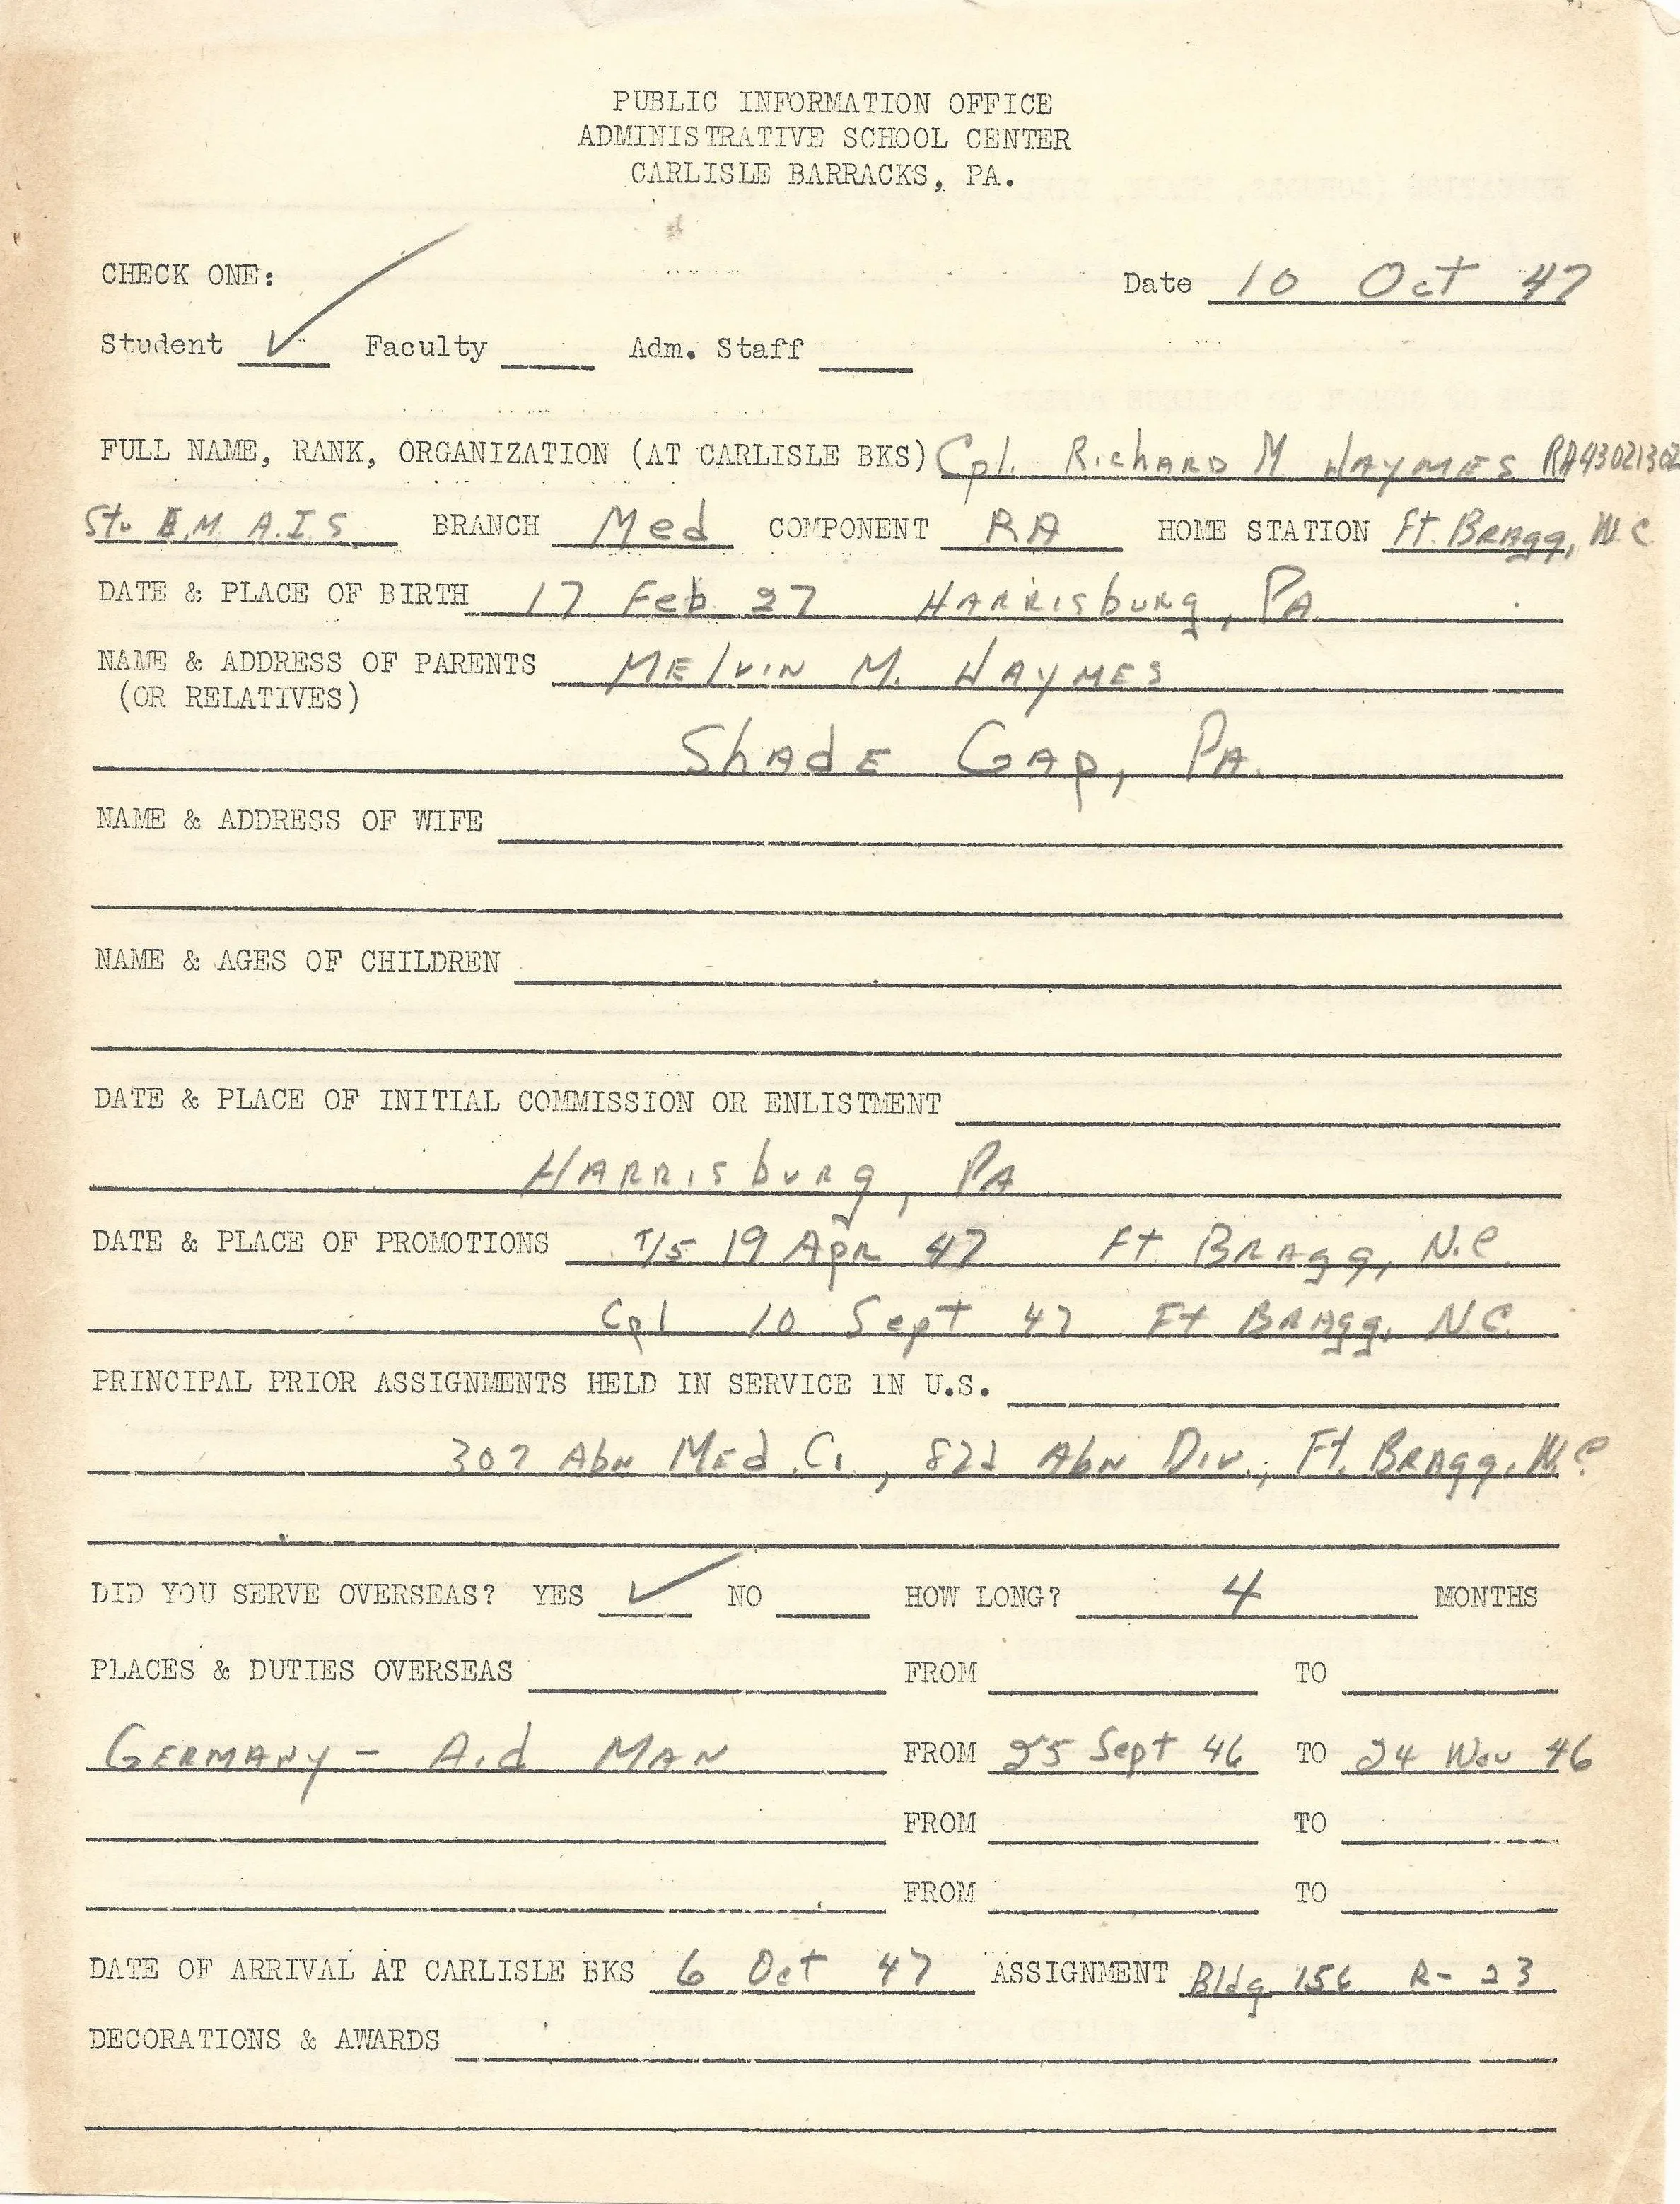 PUBLIC INFORMATION OFFICE
ADMINISTRATIVE SCHOOL CENTER
CARLISLE BARRACKS, PA.
CHECK ONE: Date 10 Oct 47
Student ✓ Faculty Adm. Staff
FULL NAME, RANK, ORGANIZATION (AT CARLISLE BKS) Cpl. Richard M Haymes RA43021302
Stu E.M A.I.S. BRANCH Med COMPONENT RA HOME STATION Ft. Bragg, N.C
DATE & PLACE OF BIRTH 17 Feb 27 Harrisburg, PA.
NAME & ADDRESS OF PARENTS Melvin M. Haymes
(OR RELATIVES)
Shade Gap, PA.
NAME & ADDRESS OF WIFE
NAME & AGES OF CHILDREN
DATE & PLACE OF INITIAL COMMISSION OR ENLISTMENT
Harrisburg, PA
DATE & PLACE OF PROMOTIONS T/5 19 Apr 47 Ft. Bragg, N.C
Cpl 10 Sept 47 Ft Bragg, N.C.
PRINCIPAL PRIOR ASSIGNMENTS HELD IN SERVICE IN U.S.
307 Abn Med. Co, 82d Abn Div., Ft. Bragg, N.C
DID YOU SERVE OVERSEAS? YES ✓ NO HOW LONG? 4 MONTHS
PLACES & DUTIES OVERSEAS FROM TO
Germany - Aid Man FROM 25 Sept 46 TO 24 Nov 46
FROM TO
FROM TO
DATE OF ARRIVAL AT CARLISLE BKS 6 Oct 47 ASSIGNMENT Bldg 156 R-23
DECORATIONS & AWARDS